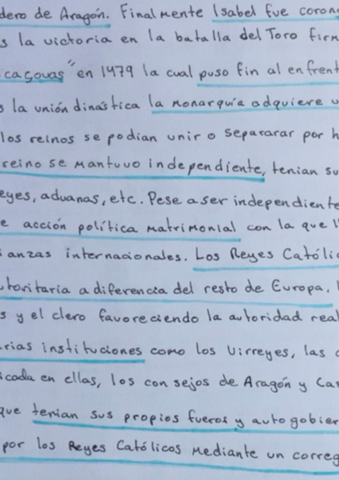 dero de Aragón. Finalmente Isabel fue coron
s la victoria en la batalla del Toro firm
caçovas" en 1479 la cual puso fin al enfrent
s la unión dinástica la monarquía adquiere u
los reinos se podian unir o sepacarar por h
reino se mantuvo independiente, tenian su
eyes, aduanas, etc. Pese a ser independiente
e acción política matrimonial con la que l
ianzas internacionales. Los Reyes Católic
utoritaria a diferencia del resto de Europa.
s y el clero favoreciendo la autoridad real
rias instituciones como los Virreyes, las c
icada en ellas, los consejos de Aragón y Ca
que tenían sus propios fueros y autogobier
por los Reyes Católicos mediante un correg